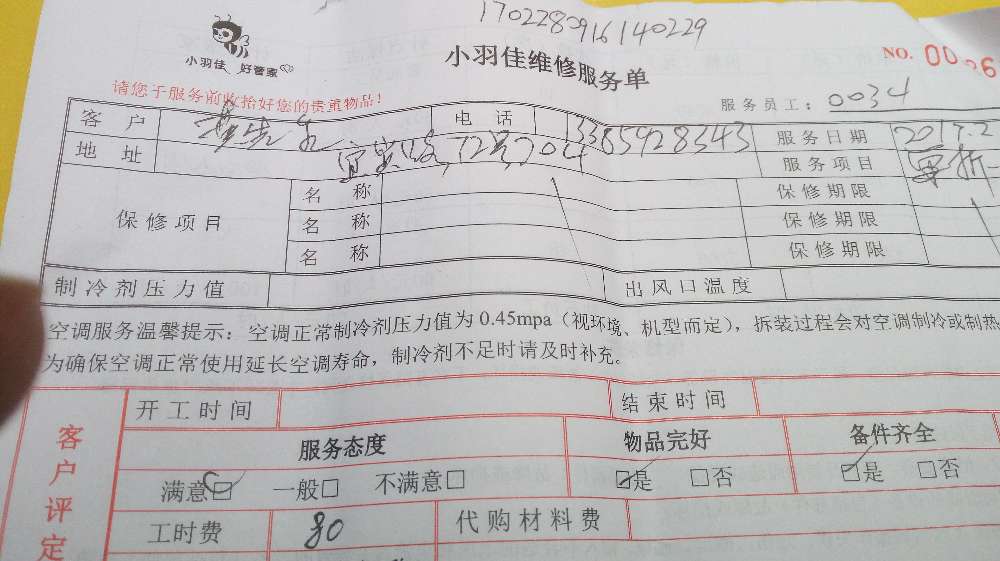 1702280916140229
小羽佳 好管家
小羽佳维修服务单
NO. 00
请您于服务前收拾好您的贵重物品!
服务员工: 0034
客户 电话 13385928343 服务日期 2017.2
地址 72号704 服务项目
保修项目 名称 保修期限
名称 保修期限
名称 保修期限
制冷剂压力值 出风口温度
空调服务温馨提示: 空调正常制冷剂压力值为0.45mpa(视环境、机型而定), 拆装过程会对空调制冷或制热
为确保空调正常使用延长空调寿命, 制冷剂不足时请及时补充。
客户评定
开工时间 结束时间
服务态度 物品完好 备件齐全
满意☑ 一般□ 不满意□ ☑是 □否 ☑是 □否
工时费 80 代购材料费